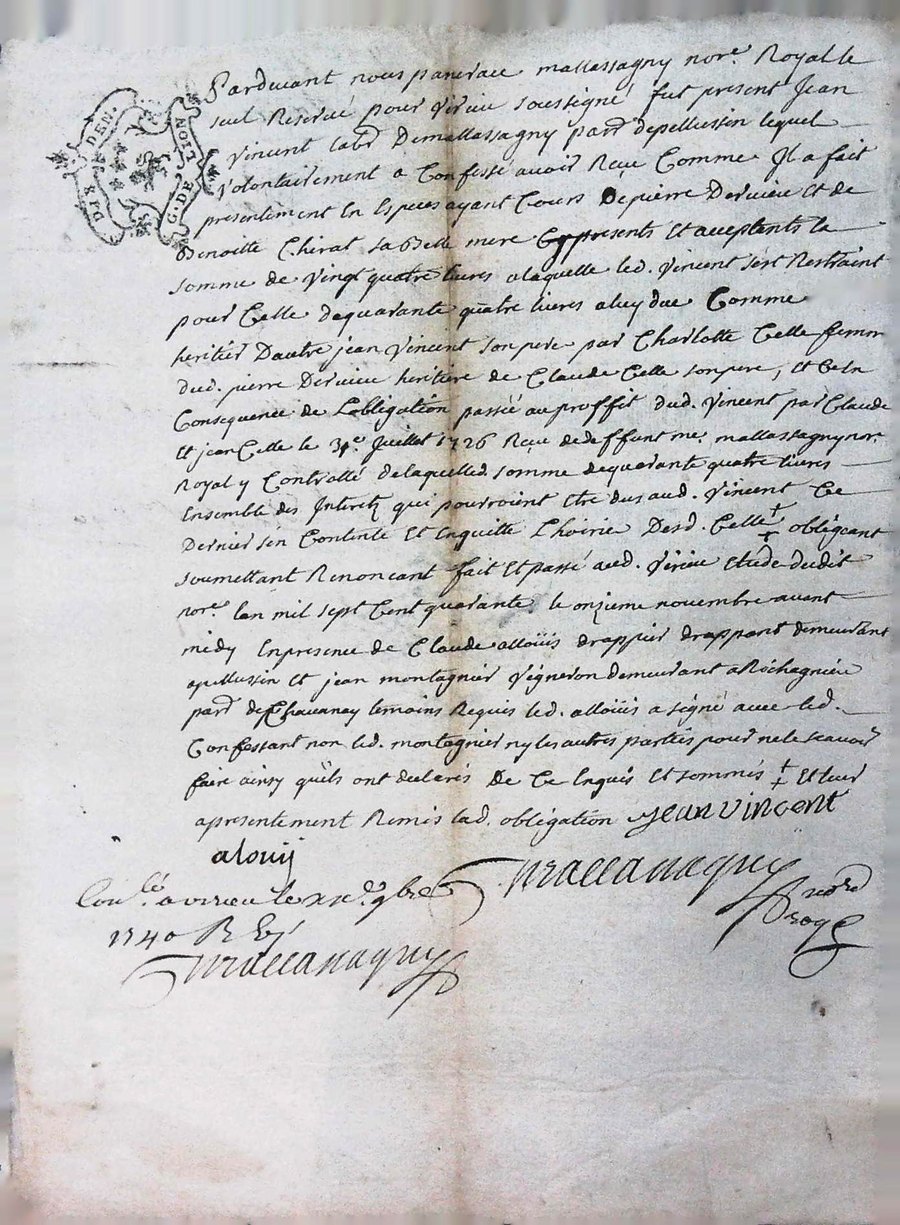 G. DE LION
8 PD DEN.
Pardevant nous pancrace mallassagny nore. Royal le
seul Reservé pour virieu soussigné fut present Jean
Vincent labr Demallassagny paroisse depellussin lequel
volontairement a Confessé avoir Reçu Comme Il a fait
presentement En Especes ayant Cours De pierre Dervieu et de
Benoitte Chirat sa Belle mere Cy presents Et acceptents la
somme de vingt quatre livres a laquelle led. vincent sest Restraint
pour Celle dequarante quatre livres a luy due Comme
heritier Dautre jean vincent son pere par Charlotte Celle femme
dud. pierre Dervieu heritiere de Claude Celle son pere, et Ce En
Consequence de Lobligation passée au proffit dud. vincent par Claude
Et jean Celle le juillet 1726 Reçue dedeffunt me. mallassagny nore.
Royal y Controllé delaquelled. somme dequarante quatre livres
Ensemble des Interetz qui pourroient Etre dus aud. vincent Ce
Dernier sen Contente Et Enquitte Lhoirie Desd. Celle ‡ obligeant
soumettant Renoncant fait Et passé aud. virieu Etude dudit
nore. lan mil sept Cent quarante le onzieme novembre avant
midy En presence de Claude alloüis drappier drappant demeurant
apellussin Et jean montagnier vigneron demeurant a Rochagnieu
paro de Chavanay temoins Requis led. alloüis a signé avec led.
Confessant non led. montagnier ny les autres parties pour ne le scavoir
faire ainsy quils ont declarés De Ce Enquis Et sommés ‡ Et leur
apresentement Remis lad. obligation jean vincent
alouij
mallassagny nore
roya
Conlé a virieu le 9bre
1740 R
mallassagny